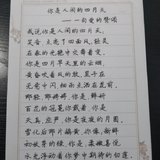 你是人间的四月天
——一句爱的赞颂
我说你是人间的四月天，
笑音点亮了四面风，轻灵
在春的光艳中交舞着变。
你是四月早天里的云烟，
黄昏吹着风的软，星子在
无意中闪，细雨点洒在花前。
那轻，那娉婷，你是，鲜妍
百花的冠冕你戴着，你是
天真，庄严，你是夜夜的月圆。
雪化后那片鹅黄，你像；新鲜
初放芽的绿，你是；柔嫩喜悦
水光浮动着你梦中期待的白莲。